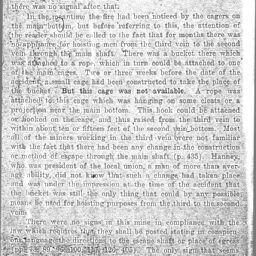 there was no signal after that.
In the meantime the fire had been noticed by the cagers on
the main bottom, but before referring to this, the attention of
the reader should be called to the fact that for months there was
no appliance for hoisting men from the third vein to the second
vein through the main shaft. There was a bucket there which
was attached to a rope, which in turn could be attached to one
of the main cages. Two or three weeks before the date of the
accident, a small cage had been constructed to take the place of
the bucket. But this cage was not available. A rope was
attached to this cage which was hanging on some cleats or a
projection near the main bottom. This hook could be attached
or hooked on the cage, and thus raised from the third vein to
within about ten or fifteen feet of the second vein bottom. Most
of the miners working in the third vein were not familiar
with the fact that there had been any change in the construction
or method of escape through the main shaft, (p. 435). Hanney,
who was president of the local union, a man of more than aver-
age ability, did not know that such a change had taken place
and was under the impression at the time of the accident that
the bucket was still the only thing that could by any possible
means be used for hoisting purposes from the third to the second
vein.
There were no signs in this mine in compliance with the
law which requires that they shall be posted stating in conspicu-
ous language the directions to the escape shaft or place of egress
The only sign that seems